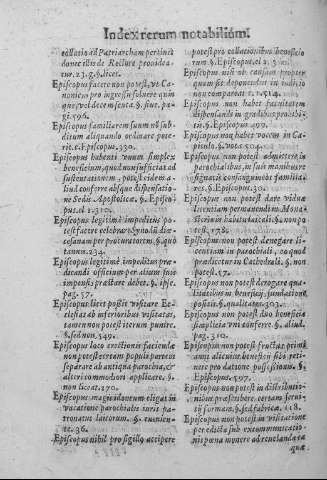 Index rerum notabiliũm.
collatio ad Patriarcham pertineat
donec illi de Rectore prouidea
tur. 23. §. licet.
Episcopus facere non potest, vt Ca
nonicus pro ingressu soluere quin
que, vel decem
gi. 596.
Episcopus familiarem suum nõ sub
ditum aliquando ordinare pote
rit. c. Episcopum. 330.
Episcopus habenti vnum simplex
beneficium, quod non sufficiat ad
sustentationem, potest idem a
liud conferre absque dispensatio
ne Sedis Apostolicæ. §. Episco
pus. el 2. 310.
Episcopus legitimè impeditus po
test facere celebrare synodũ diœ
cesanam per procuratorem. §. quo
tannis. 234.
Episcopus legitimè impeditus præ
dicandi officium per alium suis
impensis præstare debet. §. ipse.
pag. 57.
Episcopus licet possit visitare Ec-
clesias ab inferioribus visitatas,
tamen non potest iterum punire.
§. sed non. 349.
Episcopus loco erectionis faciendæ
non potest eram populi partem
separare ab antiqua parochia, &
alteri commodiori applicare. §.
non liceat. 270.
Episcopus magis idoneum eligat in
vacatione parochialis iuris pa-
tronatus laicorum. §.
te. 36.
Episcopus nihil pro sigillo accipere
potest pro collationibus beneficio
rum §. Episcopi. el 2. 3
Episcopus non ob causam propter
quam sit deponendus in iudicio
non compareat. c. 1. 514.
Episcopus non habet facultatem
dispensandi in gradibus prohibi-
tis. §. Episcopo. 499.
Episcopus non habet vocem in Ca
pitulo. §. vota 504.
Episcopus non potest admittere in
parochialibus, in suis manibus re
signatas consanguineos familiari
bus. §. Episcopus. 30.
Episcopus non potest dare viduæ
licentiam permanendi in Mona-
sterium habitu laicali. §. non po
test. 178.
Episcopus non potest denegare li-
centiam in parochialo, eo quod
prædicetur in Cathedrali. §. non
potest. 57.
Episcopus non potest derogare qua-
litatibus in beneficij fundatione
positis. §. qualitates. 303.
Episcopus non potest duo beneficia
simplicia vni conferre. §. aliud.
pag. 310.
Episcopus non potest fructus primi
anni alicuius beneficij sibi reti-
nere pro datione possessionis. §.
Episcopus. 597.
Episcopus non potest in distributio-
nibus præscribere certam senten
tiæ formam. §. sed fabricæ. 118.
Episcopus non potest in visitatione
per edicta sub excommunicatio
nis pœna monere ad reuelanda ea
quæ